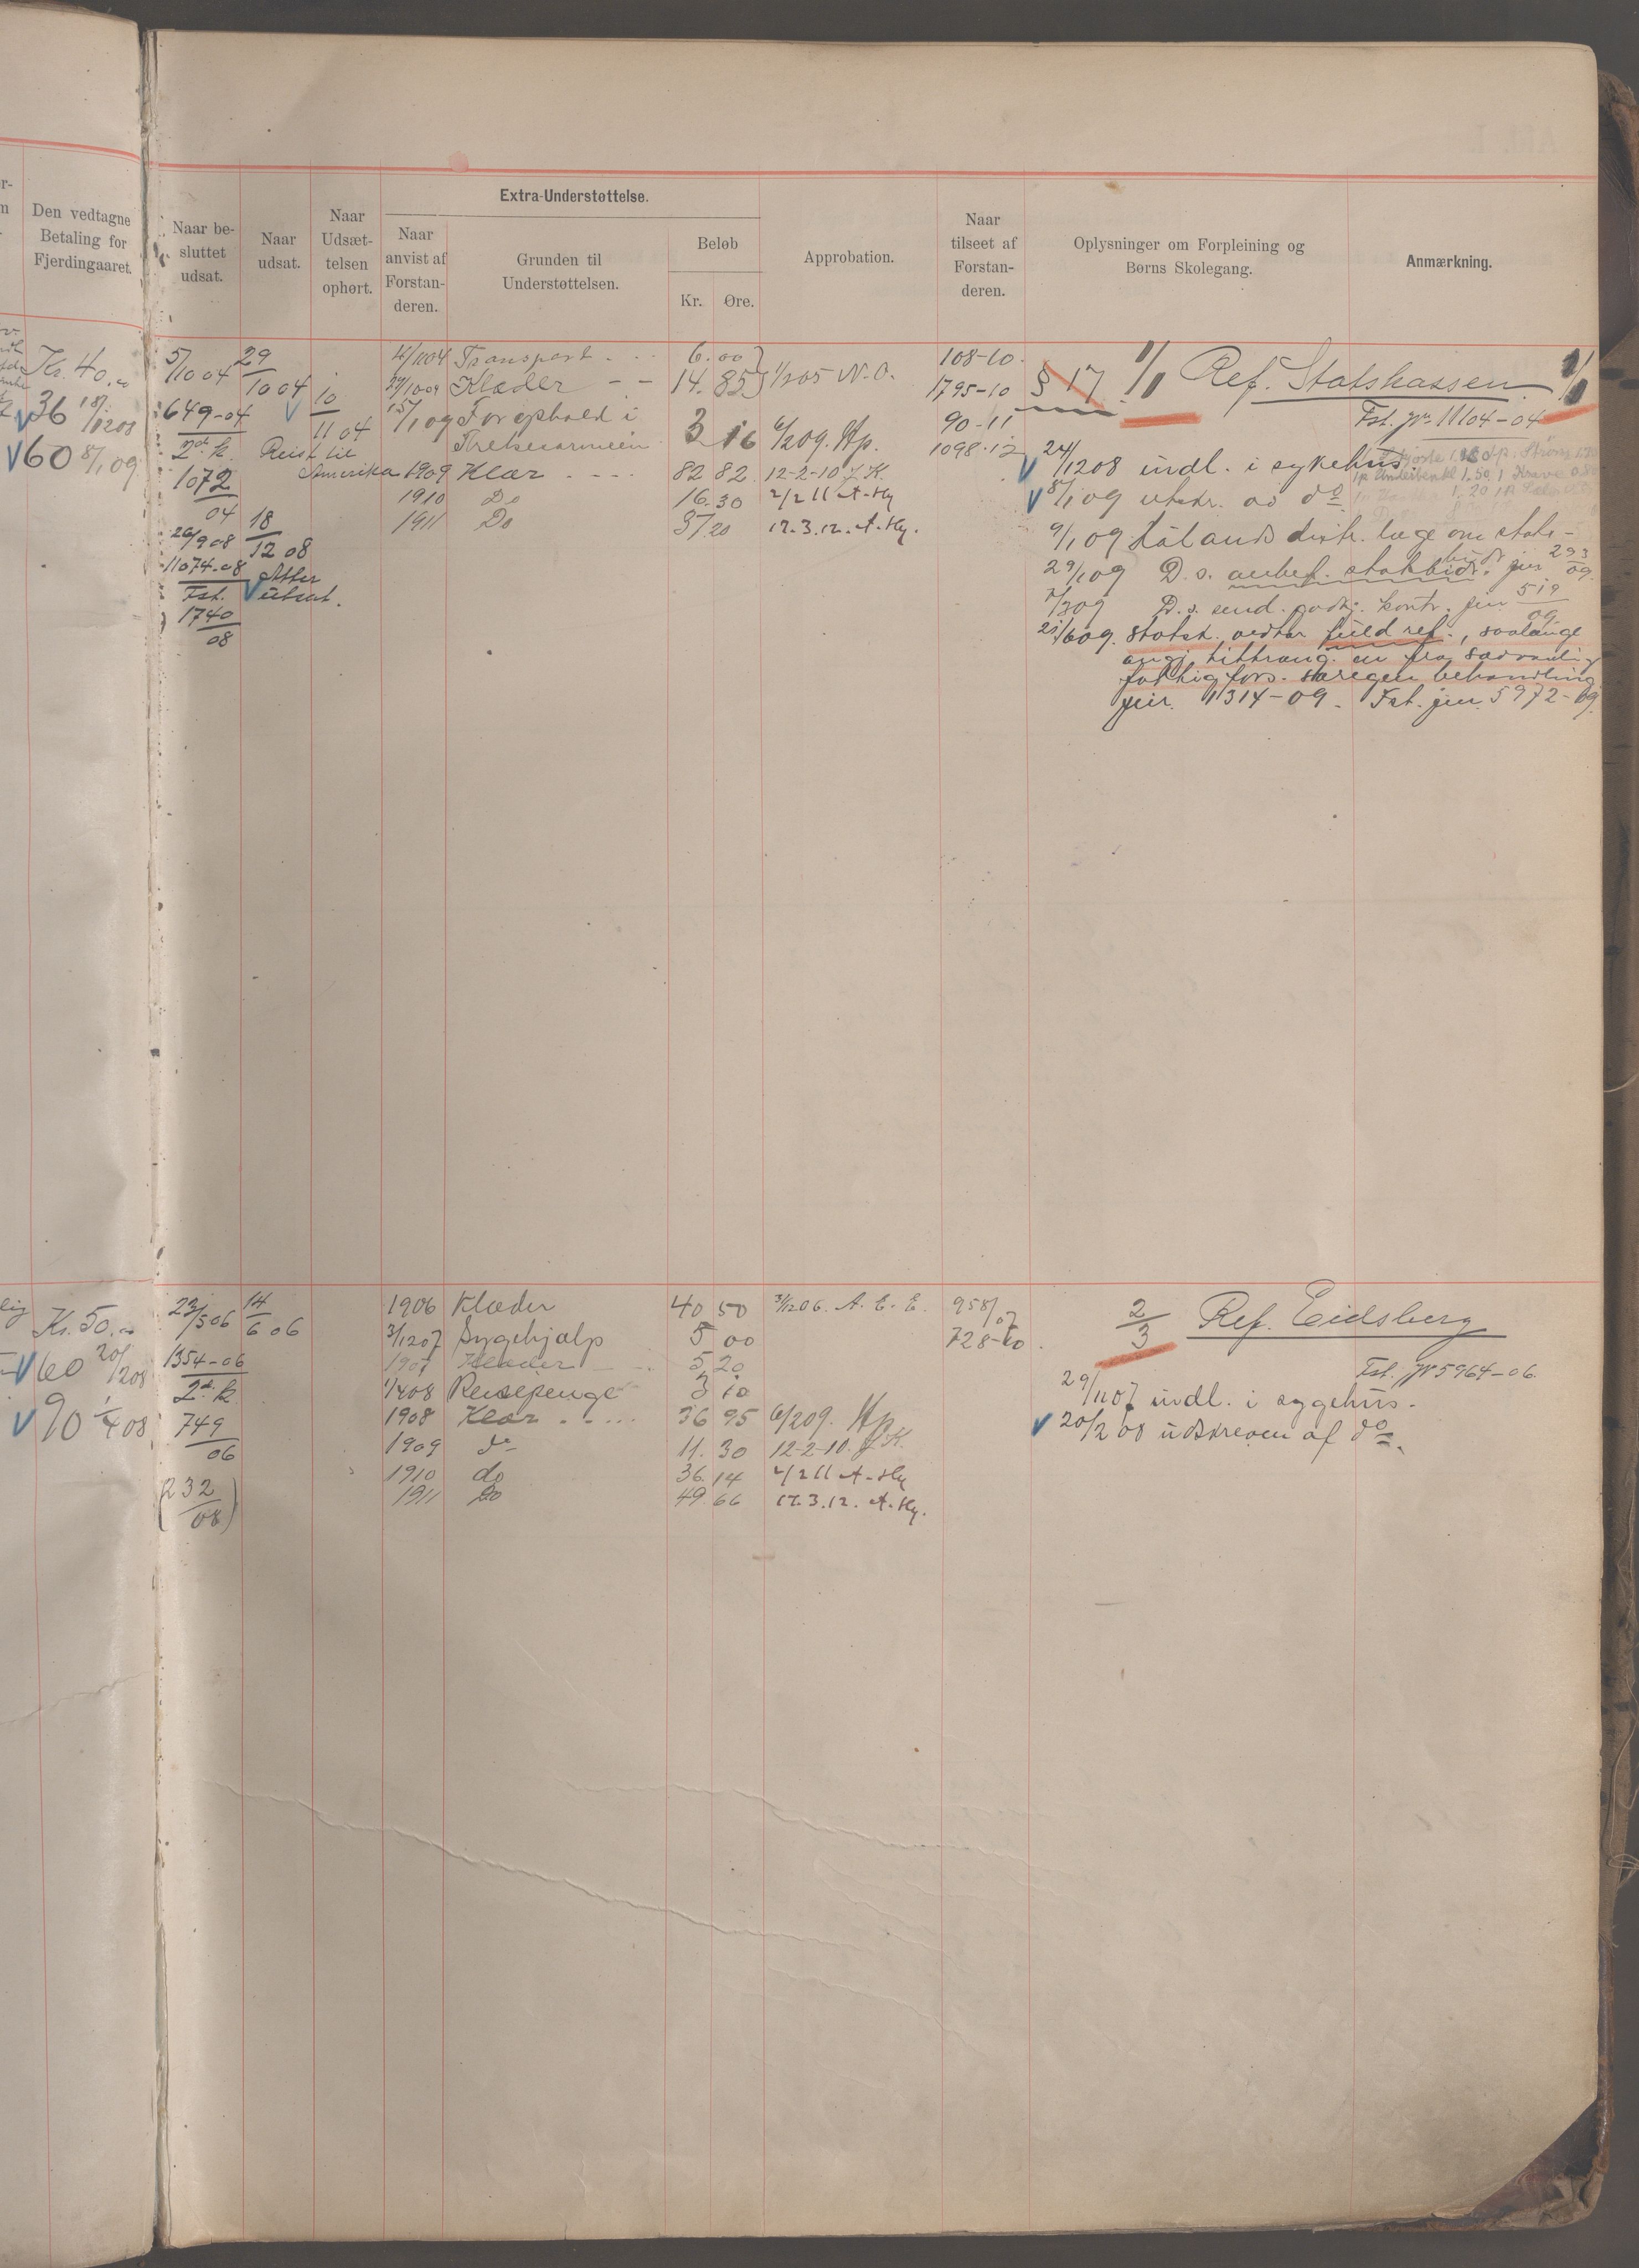 Den vedtagne
Betaling for
Fjerdingaaret.
Naar be-
sluttet
udsat.
Naar
udsat.
Naar
Udsæt-
telsen
ophørt.
Extra-Understøttelse.
Naar
anvist af
Forstan-
deren.
Grunden til
Understøttelsen.
Beløb
Kr. Øre.
Approbation.
Naar
tilseet af
Forstan-
deren.
Oplysninger om Forpleining og
Børns Skolegang.
Anmærkning.
Kr. 40.00
36 18/12 08
60 8/1 09
5/10 04
649-04
2det k.
1072
04
26/9 08
11074-08
Fst.
1740
08
29
10 04
Reist til
Amerika
18
12 08
Atter
utsat.
10
11 04
Transport 6.00
Klæder 14.85 1/2 05 N.O.
15/1 09 For ophold i
Frelsesarmeen 3 16 6/2 09. Hp.
1909 Klær 82 82 12-2-10 J.K.
1910 Do 16.30 2/2 11 A-Hy
1911 Do 37 20 12.3.12. A-Hy.
108-10.
1795-10
90-11
1098-12
§ 17 1/1 Ref. Statskassen 1/1
Fst. jr. 11104-04
24/12 08 indl. i sykehus
8/1 09 utskr. av do
9/1 09 distr. læge om stats-
29/1 09 D. s. anbef. statsbidr. jnr 293
09.
D. s. send. jnr 519
09
fuld ref., saalænge
særegen behandling
jnr. 1314-09. Fst. jnr. 5972-09.
Kr. 50.00
60 20/12 08
90 1/4 08
22/5 06
1354-06
2det k.
749
06
(232
08)
14
6 06
1906 Klæder 40 50 3/12 06. A. E. E.
3/12 07 Sygehjælp 5 00
1907 Klæder 5 20
1/4 08 Reisepenge 3 10
1908 Klær 36 95 6/2 09. Hp.
1909 do 11. 30 12-2-10. J.K.
1910 do 36. 14 2/2 11 A-Hy
1911 Do 49 66 12.3.12. A-Hy.
958/07
728-10.
2
3
Ref. Eidsberg
Fst. jr 5964-06.
29/11 07 indl. i sygehus.
20/2 08 udskreven af do.